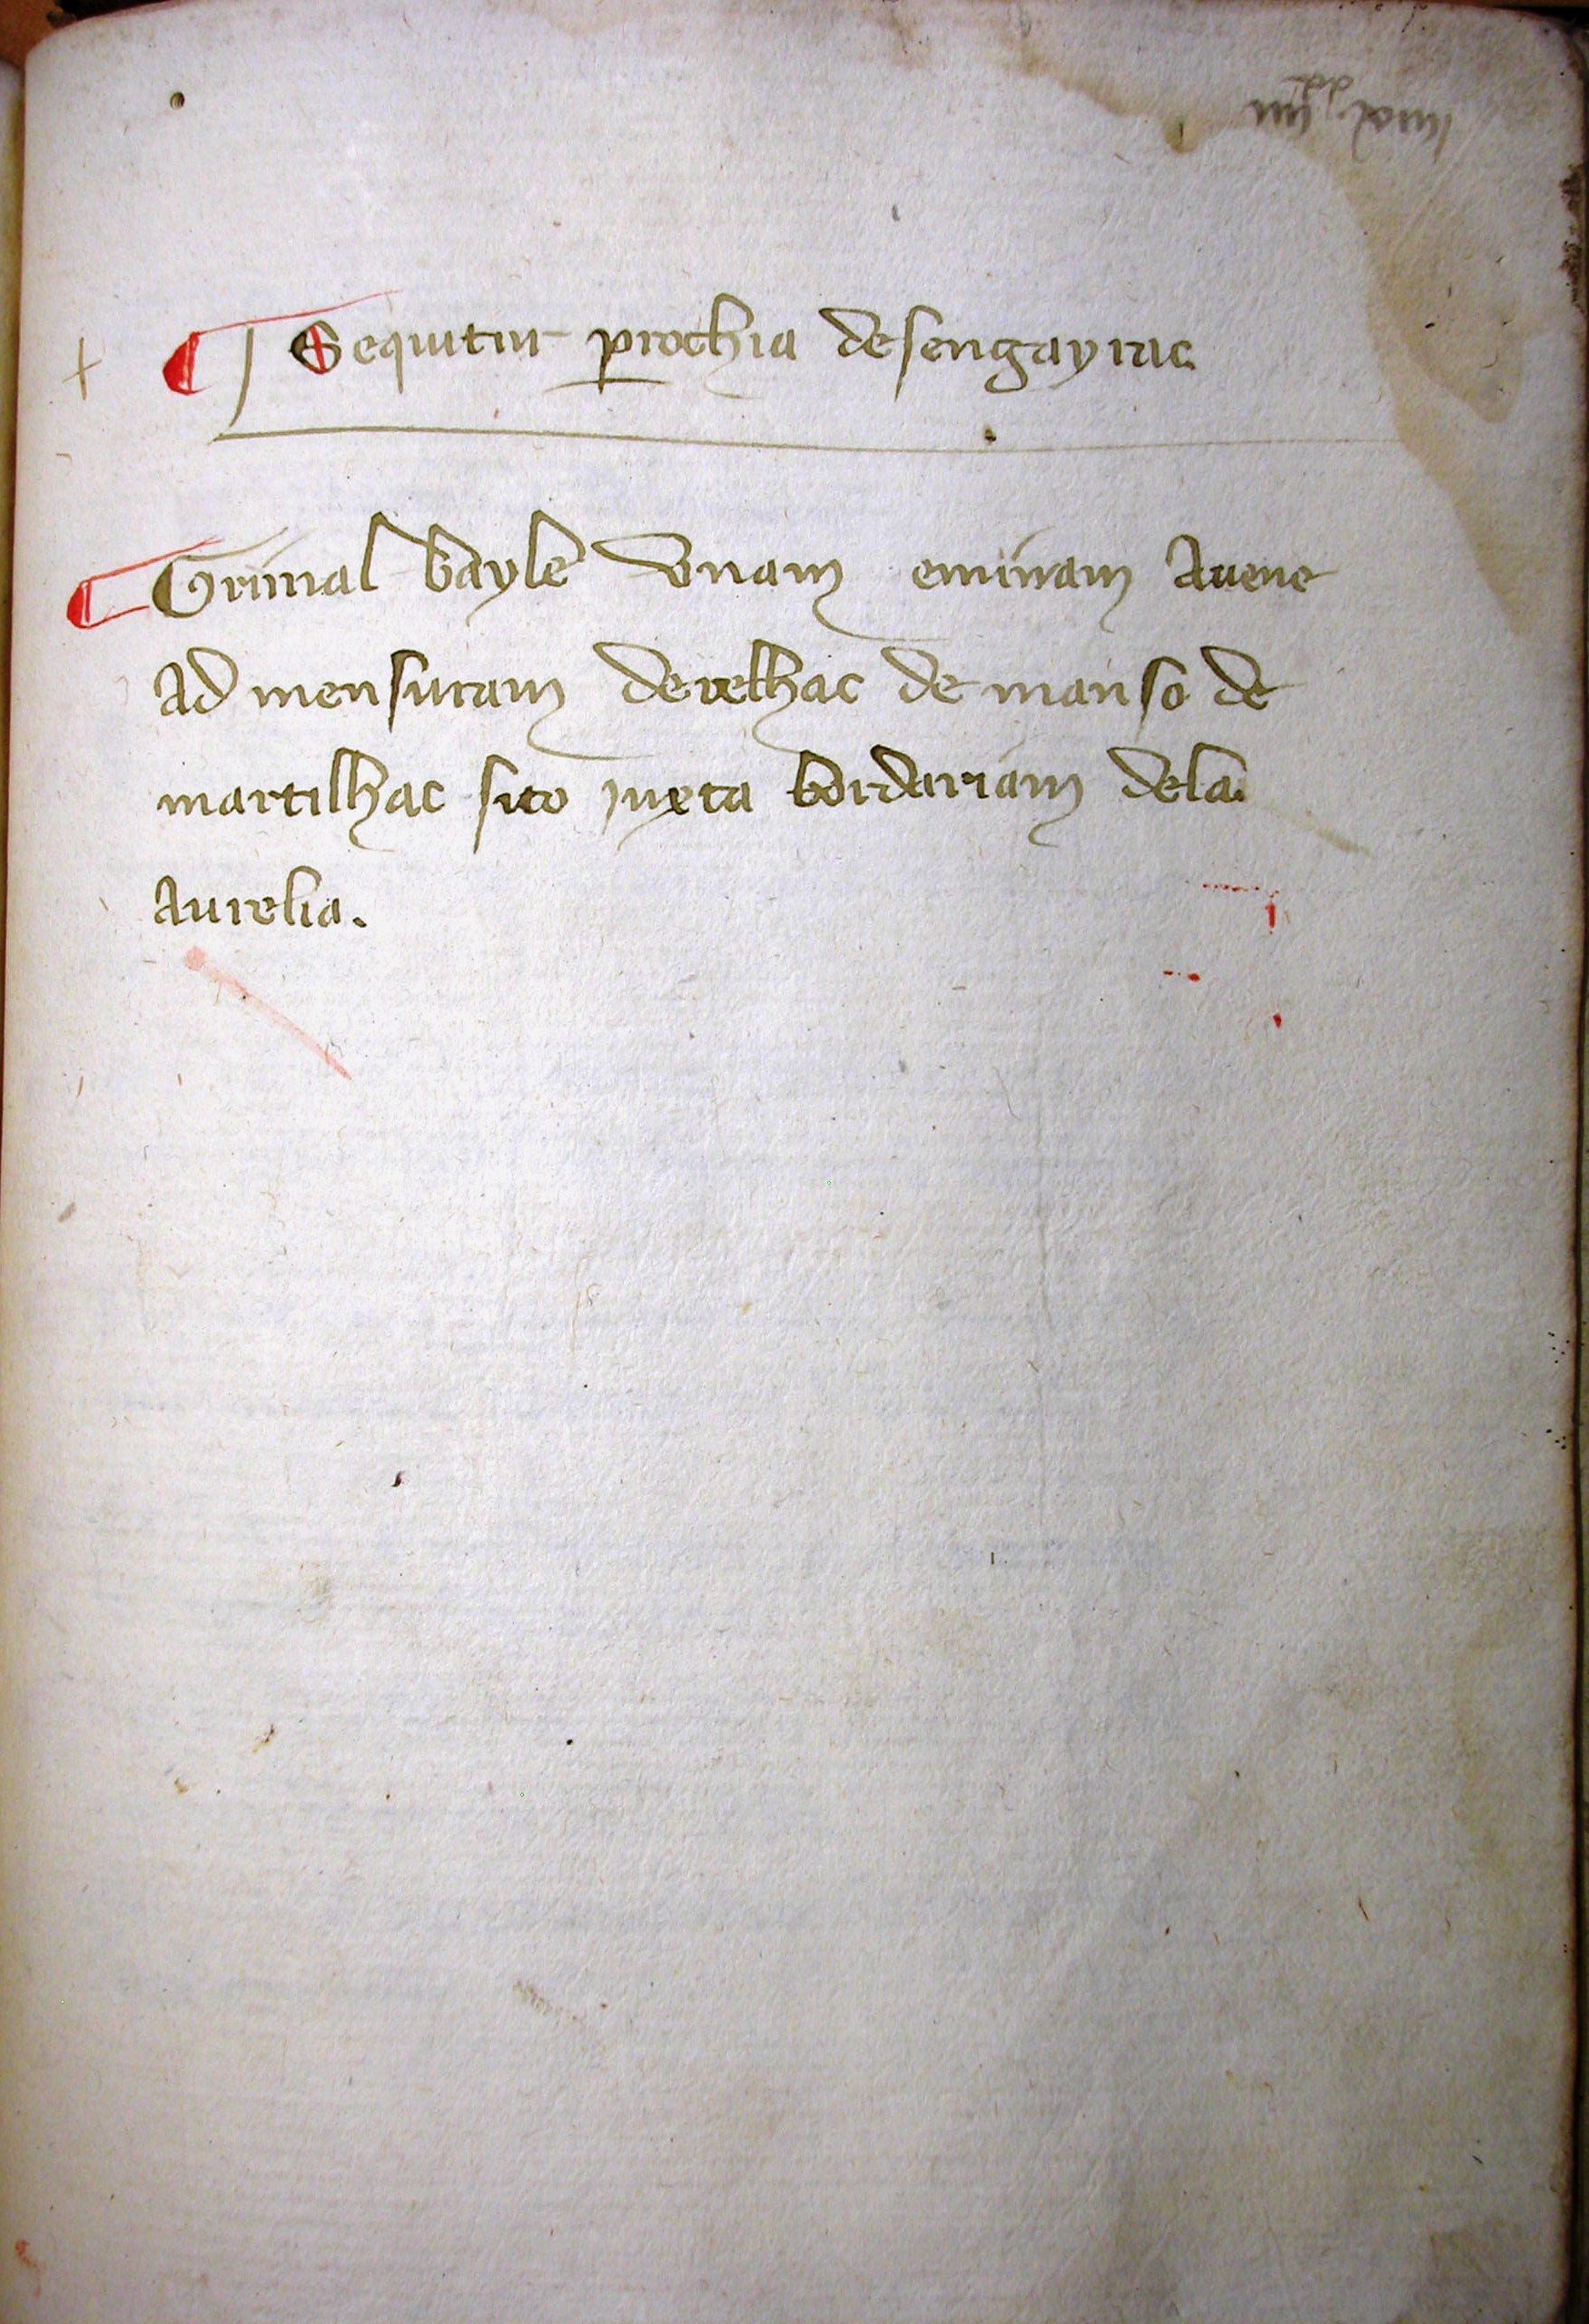 Sequitur prochia desengayrac
Grimal bayle vnam eminam Auene
Ad mensuram derelhac de manso de
martilhac sito juxta bordariam dela
Aurelia.